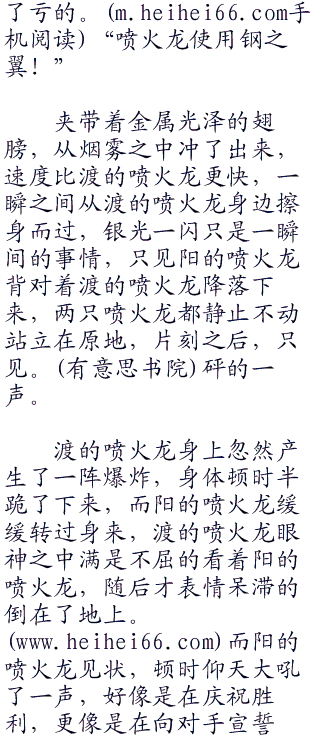 了亏的。(m.heihei66.com手
机阅读)“喷火龙使用钢之
翼！”
夹带着金属光泽的翅
膀，从烟雾之中冲了出来，
速度比渡的喷火龙更快，一
瞬之间从渡的喷火龙身边擦
身而过，银光一闪只是一瞬
间的事情，只见阳的喷火龙
背对着渡的喷火龙降落下
来，两只喷火龙都静止不动
站立在原地，片刻之后，只
见。(有意思书院)砰的一
声。
渡的喷火龙身上忽然产
生了一阵爆炸，身体顿时半
跪了下来，而阳的喷火龙缓
缓转过身来，渡的喷火龙眼
神之中满是不屈的看着阳的
喷火龙，随后才表情呆滞的
倒在了地上。
(www.heihei66.com)而阳的
喷火龙见状，顿时仰天大吼
了一声，好像是在庆祝胜
利，更像是在向对手宣誓